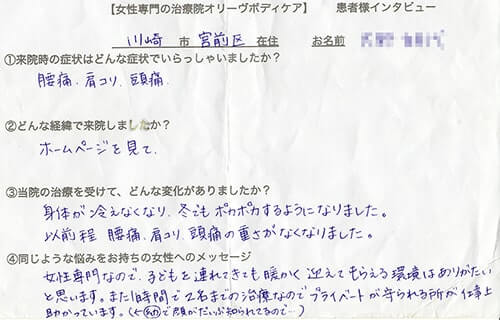 【女性専門の治療院オリーヴボディケア】 患者様インタビュー
川崎 市 宮前区 在住 お名前
①来院時の症状はどんな症状でいらっしゃいましたか？
腰痛、肩コリ、頭痛、
②どんな経緯で来院しましたか？
ホームページを見て、
③当院の治療を受けて、どんな変化がありましたか？
身体が冷えなくなり、冬でもポカポカするようになりました。
以前程 腰痛、肩コリ、頭痛の重さがなくなりました。
④同じような悩みをお持ちの女性へのメッセージ
女性専門なので、子どもを連れてきても暖かく 迎えてもらえる環境はありがたい
と思います。また1時間で2名までの治療なのでプライベートが守られる所が仕事上
助かっています。(← で顔がだいぶ知られてるので…)